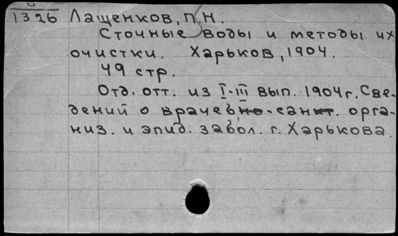 1326 Лащенков, П.Н.
Сточные воды и методы их
очистки. Харьков, 1904.
49 стр.
Отд. отт. из I-III вып. 1904г. Све-
дений о врачебно-санит. орга-
низ. и эпид. забол. г. Харькова.